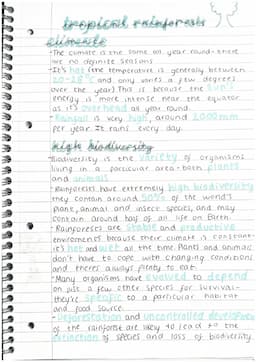 tropical rainforests
climate
• The climate is the same all year round - there
are no definite seasons
• It's hot (the temperature is generally between
20-28°C and only varies a few degrees
over the year) This is because the sun's
energy is more intense near the equator
as it's overhead all year round.
• Rainfall is very high, around 2000mm
per year. It rains every day.
high biodiversity
• Biodiversity is the variety of organisms
living in a particular area - both plants
and animals
• Rainforests have extremely high biodiversity
they contain around 50% of the world's
plant, animal and insect species, and may
contain around half of all life on Earth.
• Rainforests are stable and productive
environments because their climate is constant -
it's hot and wet all the time. Plants and animals
don't have to cope with changing conditions
and there's always plenty to eat.
• Many organisms have evolved to depend
on just a few other species for survival -
they're specific to a particular habitat
and food source.
• Deforestation and uncontrolled development
of the rainforest are likely to lead to the
extinction of species and loss of biodiversity.